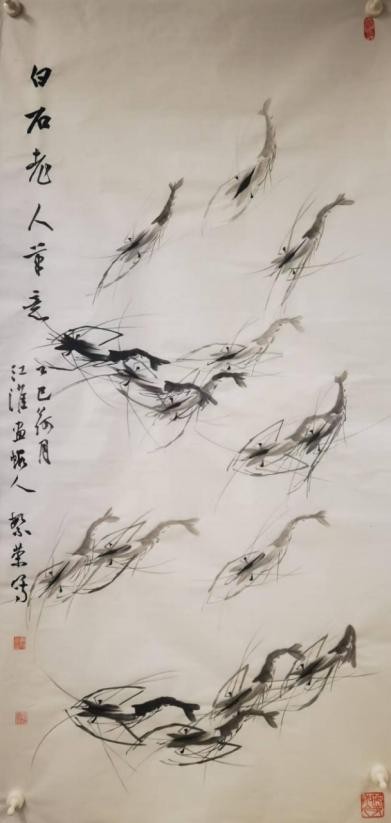 白石老人笔意
乙巳荷月
江淮画虾人 繁荣写